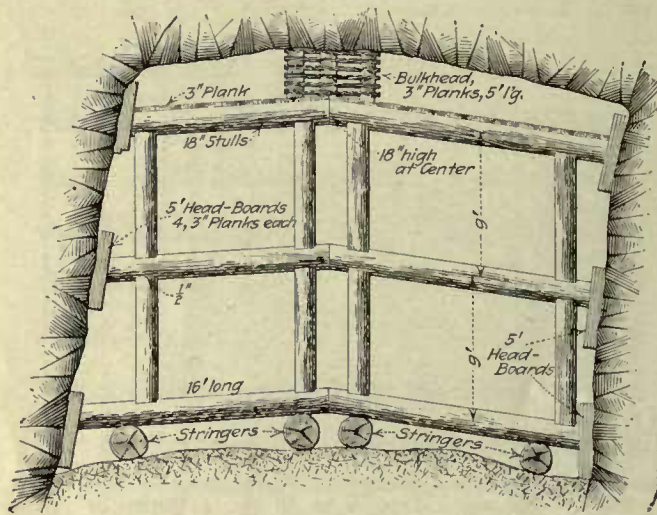 Bulkhead,
3" Planks, 5' l'g.
3" Plank
18" Stulls
18" high
at Center
5' Head-Boards
4, 3" Planks each
9'
1/2"
9'
5'
Head-
Boards
16' long
Stringers
Stringers